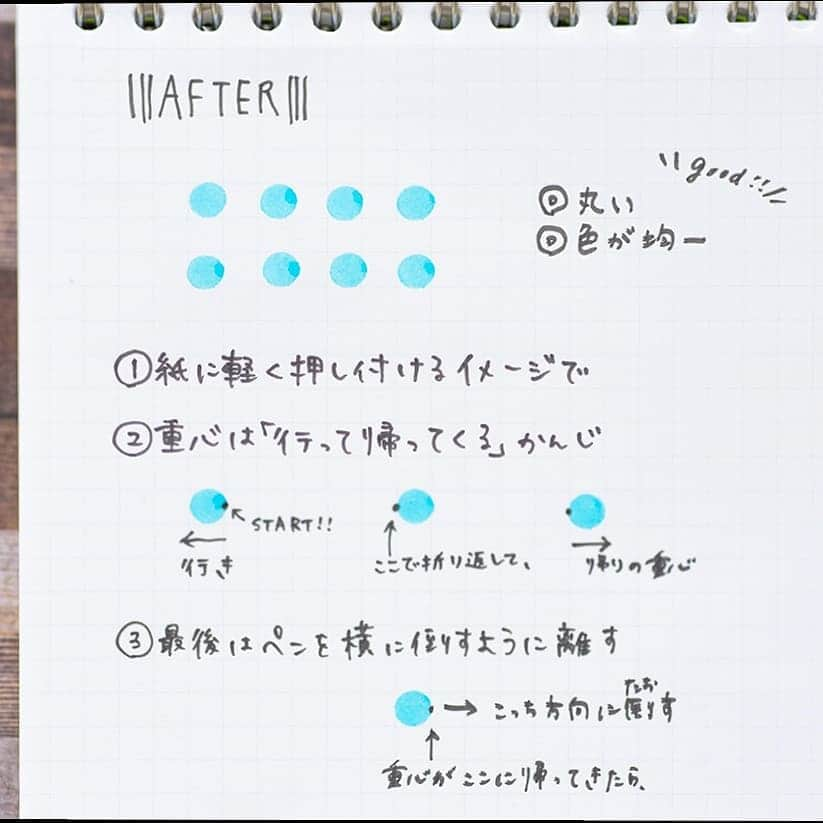 AFTER
good!!
◎丸い
◎色が均一
①紙に軽く押し付けるイメージで
②重心は「行って帰ってくる」かんじ
START!!
行き
ここで折り返して、
帰りの重心
③最後はペンを横に倒すように離す
たお
こっち方向に倒す
重心がここに帰ってきたら、